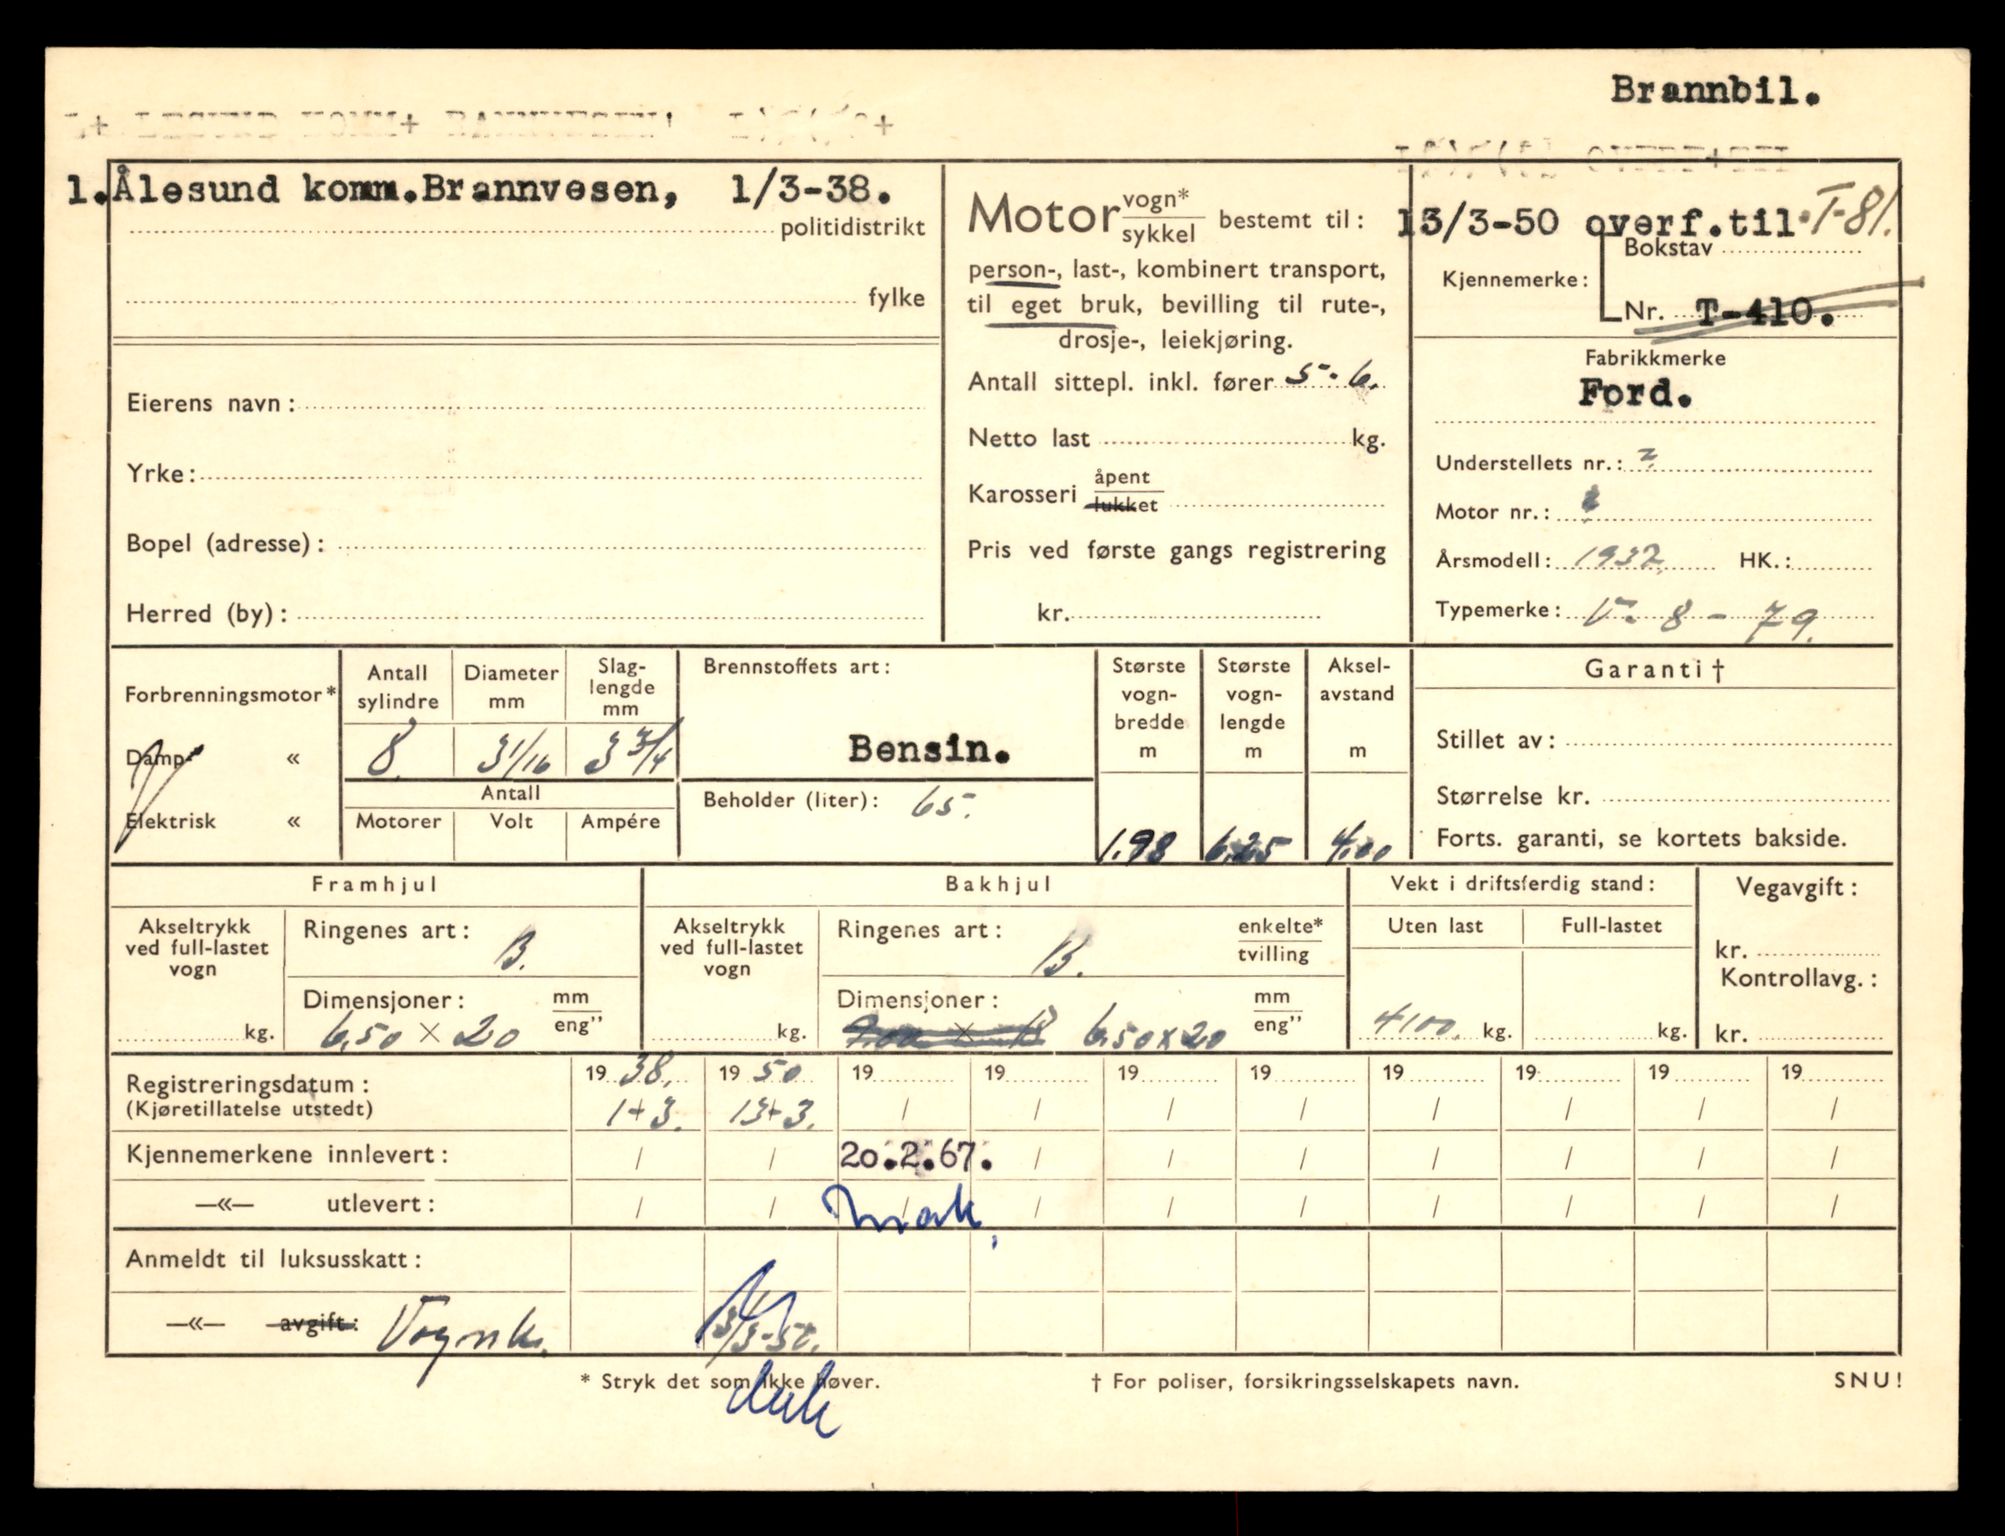 Brannbil.
1. Ålesund komm.Brannvesen, 1/3-38.
politidistrikt
fylke
Eierens navn:
Yrke:
Bopel (adresse):
Herred (by):
Motor vogn* / sykkel bestemt til:
person-, last-, kombinert transport,
til eget bruk, bevilling til rute-,
drosje-, leiekjøring.
Antall sittepl. inkl. fører 5-6.
Netto last kg.
Karosseri åpent / lukket
Pris ved første gangs registrering
kr.
13/3-50 overf.til T-81.
Bokstav
Kjennemerke:
Nr. T-410.
Fabrikkmerke
Ford.
Understellets nr.: ?
Motor nr.:
Årsmodell: 1932. HK.:
Typemerke: V-8-79.
Forbrenningsmotor*
Damp- «
Elektrisk «
Antall sylindre
8.
Diameter mm
3 1/16
Slag-lengde mm
3 3/4
Antall
Motorer Volt Ampére
Brennstoffets art:
Bensin.
Beholder (liter): 65.
Største vogn-bredde m
1.98
Største vogn-lengde m
6.25
Aksel-avstand m
4.00
Garanti †
Stillet av:
Størrelse kr.
Forts. garanti, se kortets bakside.
Framhjul
Akseltrykk
ved full-lastet
vogn
kg.
Ringenes art: B.
Dimensjoner: mm / eng”
6.50 × 20
Bakhjul
Akseltrykk
ved full-lastet
vogn
kg.
Ringenes art: B. enkelte* / tvilling
Dimensjoner: mm / eng”
6.50 x 20
Vekt i driftsferdig stand:
Uten last Full-lastet
4100. kg. kg.
Vegavgift:
kr.
Kontrollavg.:
kr.
Registreringsdatum: 19 38. 19 50 19 19 19 19 19 19 19 19
(Kjøretillatelse utstedt) 1+3. 13+3. / / / / / / / /
Kjennemerkene innlevert: / / 20.2.67. / / / / / / /
—«— utlevert: / / / / / / / / / /
Anmeldt til luksusskatt:
—«— avgift: Vognk. 13/3-50.
* Stryk det som ikke høver.
† For poliser, forsikringsselskapets navn.
SNU!